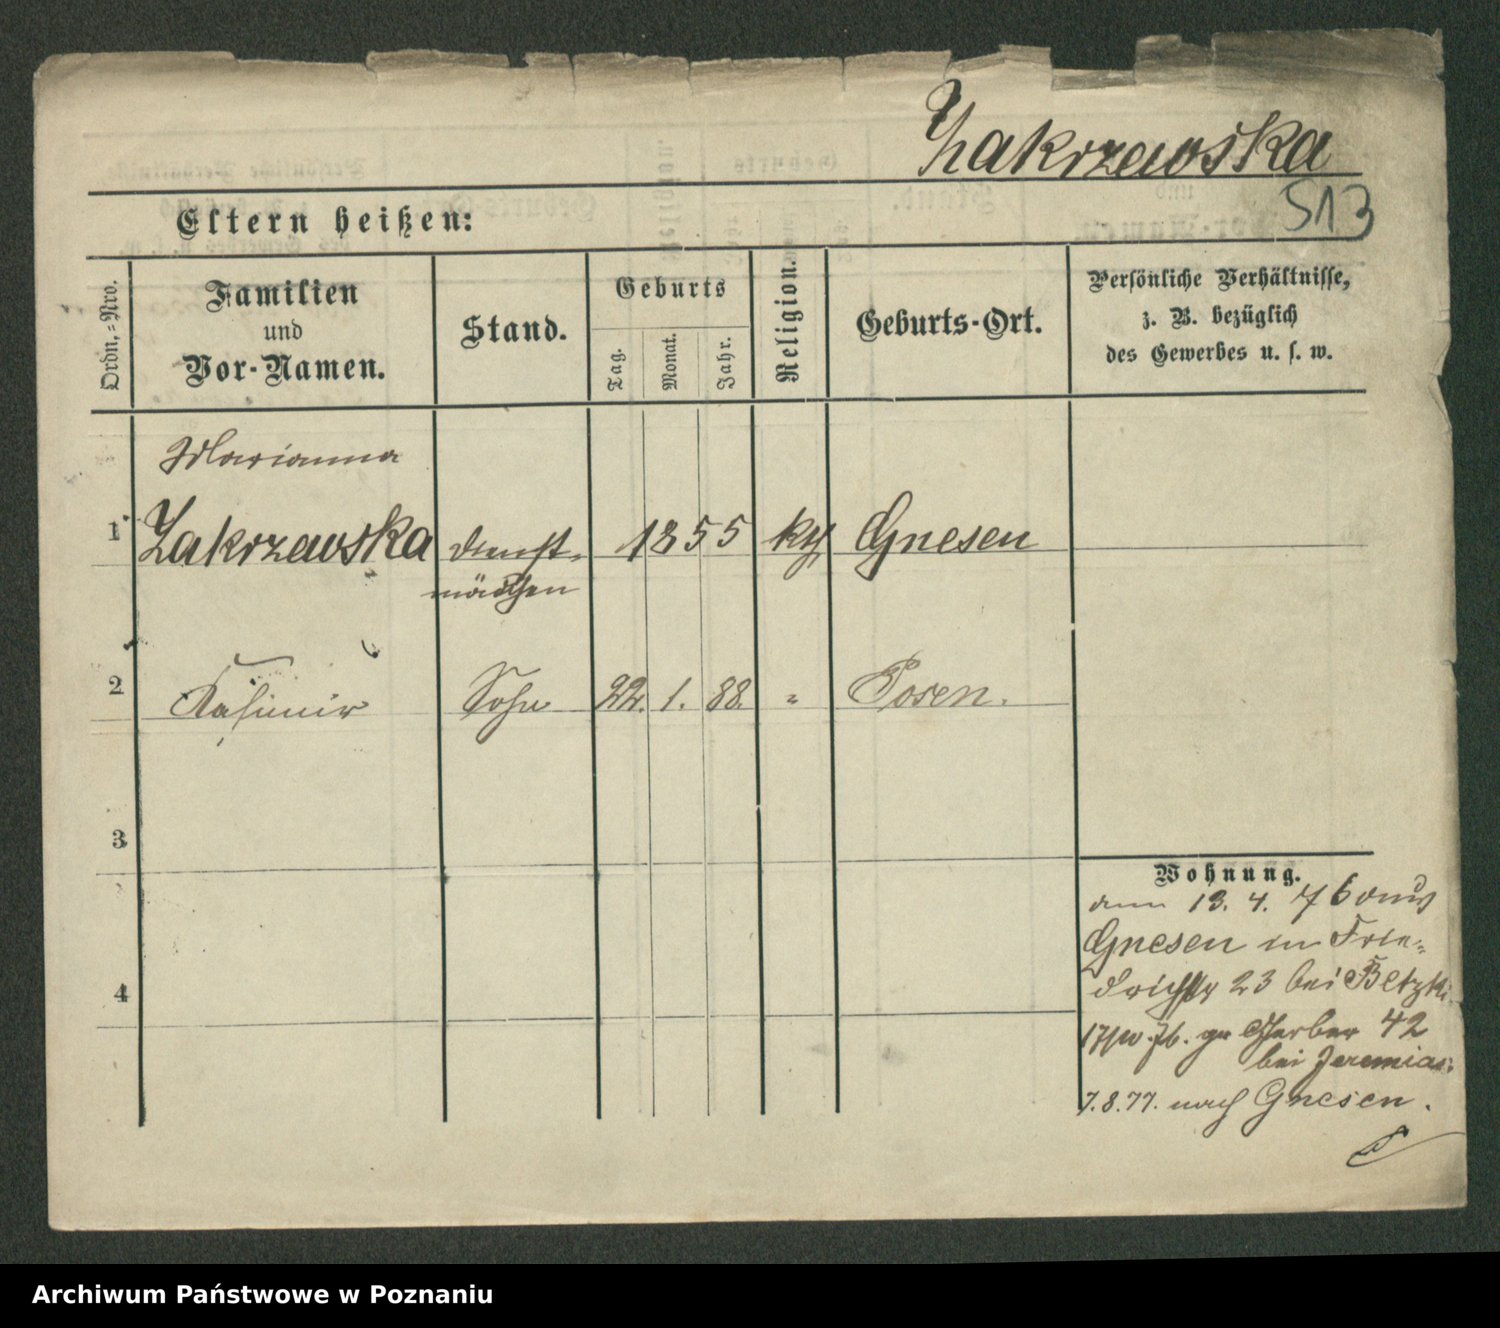 Zakrzewska
513
Eltern heißen:
Ordn.-Nro.
Familien
und
Vor-Namen.
Stand.
Geburts
Tag.
Monat.
Jahr.
Religion.
Geburts-Ort.
Persönliche Verhältnisse,
z. B. bezüglich
des Gewerbes u. s. w.
Marianna
1 Zakrzewska Dienst- 1855 kth Gnesen
mädchen
2 Kasimir Sohn 22. 1. 88. " Posen.
3
4
Wohnung.
am 13. 4. 76 aus
Gnesen in Frie-
drichstr 23 bei Betzki
17/10. 76. gr Gerber 42
bei Jeremias
7.8.77. nach Gnesen.
Archiwum Państwowe w Poznaniu